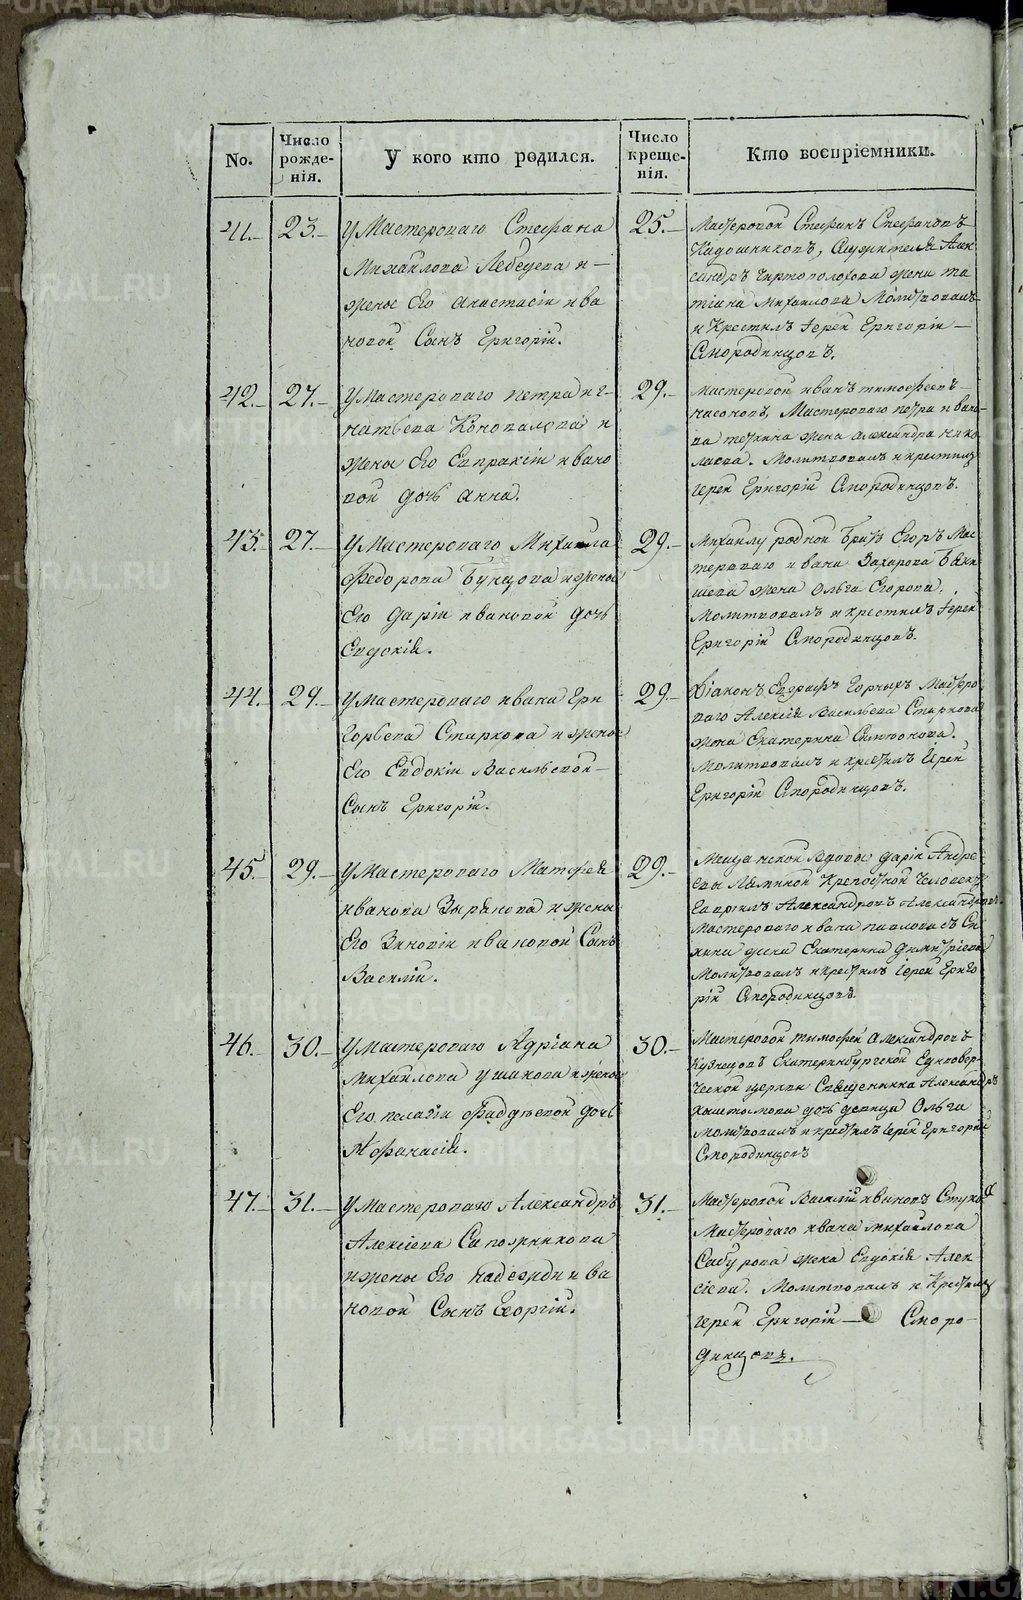 No.
Число рожде-нія.
У кого кто родился.
Число креще-нія.
Кто воспріемники.
41.
23.
У Мастероваго Стефана
Михайлова Лебедева и
жены Его Анастасіи Ива
новой Сынъ Григорій.
25.
Мастеровой Стефанъ Стефановъ
Кадошниковъ, Служителя Алек
сандръ Чертополохова жена Та
тіана Михайлова Молитвовалъ
и Крестилъ Іерей Григорій
Смородинцовъ.
42.
27.
У Мастероваго Петра Иг-
натьева Коновалова и
жены Его Евпраксіи Ивано
вой дочь Анна.
29.
Мастеровой Иванъ Тимофеевъ
Часовъ, Мастероваго Петра Ивано-
ва жена Александра Нико
лаева. Молитвовалъ и крестилъ
Іерей Григорій Смородинцовъ.
43.
27.
У Мастероваго Михаила
Федорова Бунцова и жены
Его Даріи Ивановой дочь
Евдокія.
29.
Михаилу родной братъ Егоръ Мас-
тероваго Ивана Захарова
жена Ольга Егорова.
Молитвовалъ и крестилъ Іерей
Григорій Смородинцовъ.
44.
29.
У Мастероваго Ивана Гри
горьева Старкова и жены
Его Евдокіи Васильевой
Сынъ Григорій.
29.
Діаконъ Евграфъ Горныхъ Мастеро
ваго Алексія Васильева Старкова
жена Екатерина Симеонова.
Молитвовалъ и крестилъ Іерей
Григорій Смородинцовъ.
45.
29.
У Мастероваго Матфея
Иванова Зырянова и жены
Его Зиновіи Ивановой Сынъ
Василій.
29.
Мещанской вдовы Даріи Андре-
евы Крепостной Человекъ
Гавріилъ Александровъ Александровъ.
Мастероваго Ивана Павлова
жена Екатерина Димитріева
Молитвовалъ и крестилъ Іерей Григо
рій Смородинцовъ.
46.
30.
У Мастероваго Адріана
Михайлова Ушакова и жены
Его Пелагіи Фаддѣевой дочь
Афанасія.
30.
Мастеровой Тимофей Александровъ
Кузнецовъ Екатеринбургской Единовер-
ческой церкви Священника Александръ
дочь девица Ольга
Молитвовалъ и крестилъ Іерей Григорій
Смородинцовъ
47.
31.
У Мастероваго Александръ
Алексіева Сапожникова
и жены Его Надежди Ива
новой Сынъ Георгій.
31.
Мастеровой Василій Ивановъ
Мастероваго Ивана Михайлова
Сабурова жена Евдокія Алек-
сіева. Молитвовалъ и Крестилъ
Іерей Григорій Сморо-
динцовъ.
METRIKI.GASO-URAL.RU